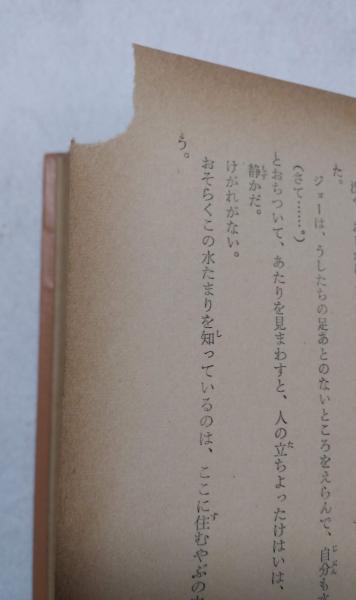 た。
ジョーは、うしたちの足あとのないところをえらんで、自分も水
（さて……。）
とおちついて、あたりを見まわすと、人の立ちよったけはいは、
静かだ。
けがれがない。
おそらくこの水たまりを知っているのは、ここに住むやぶの
う。